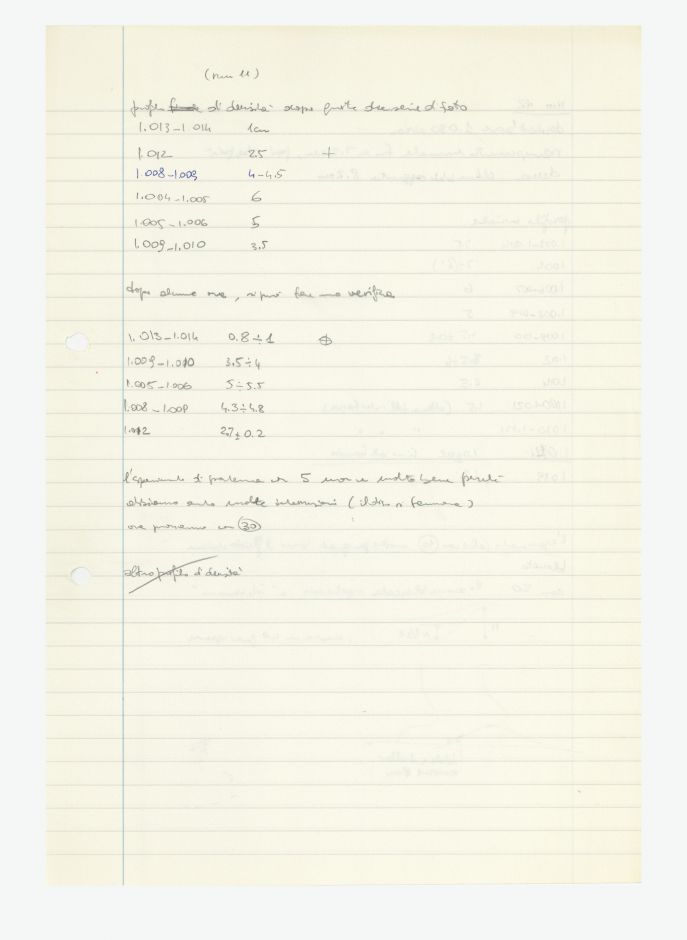 (num 11)
profilo di densità dopo queste due serie di foto
1.013-1.014 1cm
1.012 2.5 +
1.008-1.009 4-4.5
1.004-1.005 6
1.005-1.006 5
1.009-1.010 3.5
dopo alcune ore, si può fare una verifica
1.013-1.014 0.8÷1 ⌽
1.009-1.010 3.5÷4
1.005-1.006 5÷5.5
1.008-1.009 4.3÷4.8
1.012 2.7±0.2
l'esperimento di con 5 non molto bene perché
abbiamo avuto molte interruzioni (il disco si fermava)
ora proviamo con 30
altro profilo di densità